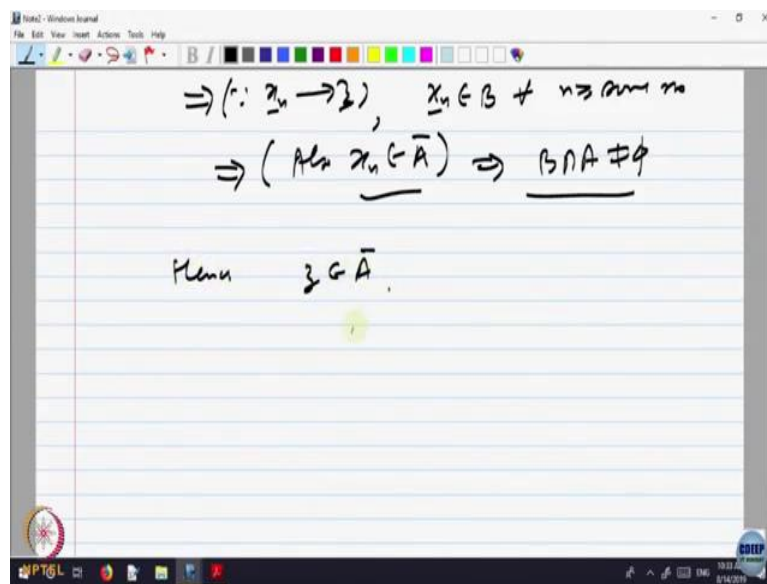 Note2 - Windows Journal
File Edit View Insert Actions Tools Help
B I
⇒ (∵ x_n → z), x_n ∈ B ∀ n ≥ some n_0
⇒ ( Also x_n ∈ Ā ) ⇒ B ∩ A ≠ ϕ
Hence z ∈ Ā.
NPTEL
CDEEP
ENG
8/14/2019